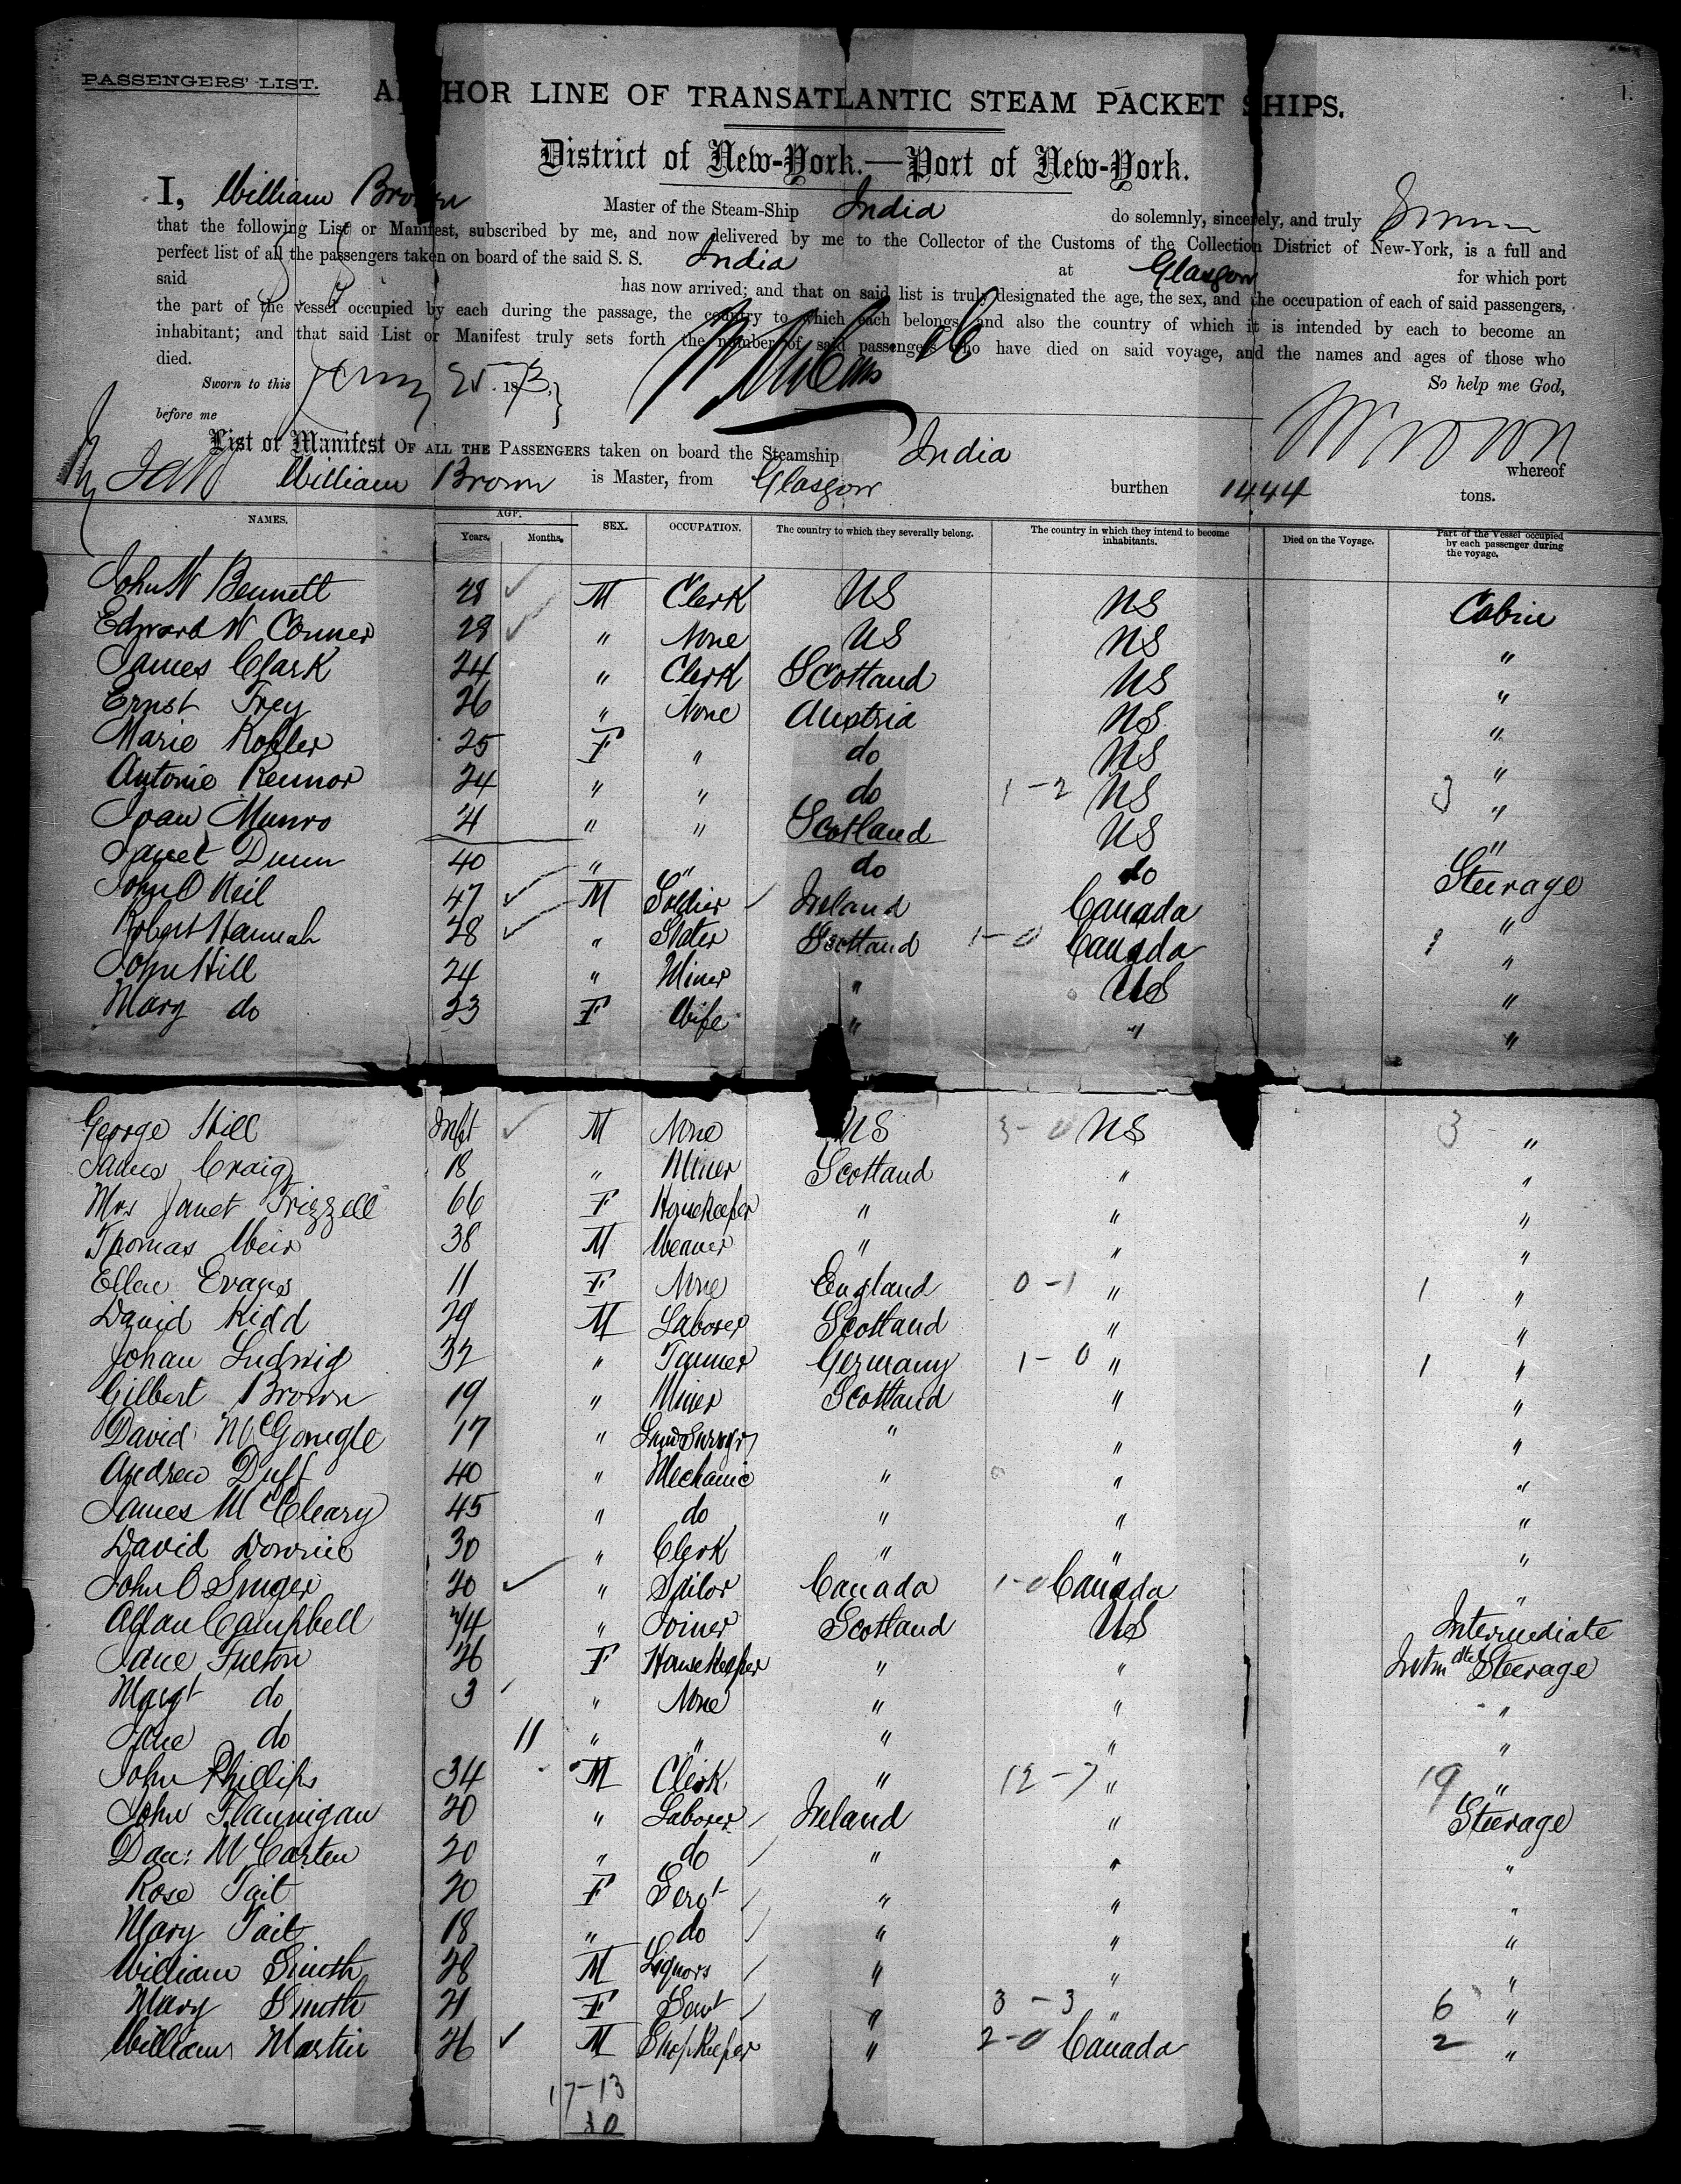 PASSENGERS' LIST.
1.
ANCHOR LINE OF TRANSATLANTIC STEAM PACKET SHIPS.
District of New-York.—Port of New-York.
I, William Brown Master of the Steam-Ship India do solemnly, sincerely, and truly
that the following List or Manifest, subscribed by me, and now delivered by me to the Collector of the Customs of the Collection District of New-York, is a full and
perfect list of all the passengers taken on board of the said S. S. India at Glasgow for which port
said has now arrived; and that on said list is truly designated the age, the sex, and the occupation of each of said passengers,
the part of the vessel occupied by each during the passage, the country to which each belongs, and also the country of which it is intended by each to become an
inhabitant; and that said List or Manifest truly sets forth the number of said passengers who have died on said voyage, and the names and ages of those who
died.
Sworn to this 25. 1873. So help me God,
before me
List or Manifest OF ALL THE PASSENGERS taken on board the Steamship India whereof
William Brown is Master, from Glasgow burthen 1444 tons.
NAMES. AGE. Years. Months. SEX. OCCUPATION. The country to which they severally belong. The country in which they intend to become inhabitants. Died on the Voyage. Part of the Vessel occupied by each passenger during the voyage.
John W Bennett 28 M Clerk US US Cabin
Edward W Conner 29 " None US US "
James Clark 24 " Clerk Scotland US "
Ernst Frey 26 " None Austria US "
Marie Kohler 25 F " do US "
Antonie Rennor 24 " " do 1-2 US 3 "
Joan Munro 4 " " Scotland US "
Janet Dunn 40 " " do do Steerage
John O Neil 47 M Soldier Ireland Canada "
Robert Hannah 28 " Slater Scotland 1-0 Canada 1 "
John Hill 24 " Miner " US "
Mary do 23 F Wife " " "
George Hill Inft M None US 3-0 US 3 "
James Craig 18 " Miner Scotland " "
Mrs Janet Frizzell 66 F Housekeeper " " "
Thomas Weir 38 M Weaver " " "
Ellen Evans 11 F None England 0-1 " 1 "
David Kidd 29 M Laborer Scotland " "
Johan Ludwig 32 " Tanner Germany 1-0 " 1 "
Gilbert Brown 19 " Miner Scotland " "
David McGonigle 17 " " " "
Andrew Duff 40 " Mechanic " " "
James McCleary 45 " do " " "
David Downie 30 " Clerk " " "
John O Singer 20 " Sailor Canada 1-0 Canada "
Allan Campbell 44 " Joiner Scotland US Intermediate
Jane Fulton 26 F Housekeeper " " Steerage
Margt do 3 " None " " "
Jane do 11 " " " " "
John Phillips 34 M Clerk " 12-7 " 19 "
John Flannigan 20 " Laborer Ireland " Steerage
Dan: McCarten 20 " do " " "
Rose Tait 20 F Servt " " "
Mary Tait 18 " do " " "
William Smith 28 M " " "
Mary Smith 21 F Servt " 3-3 " 6 "
William Martin 26 M Shopkeeper " 2-0 Canada 2 "
17-13
30